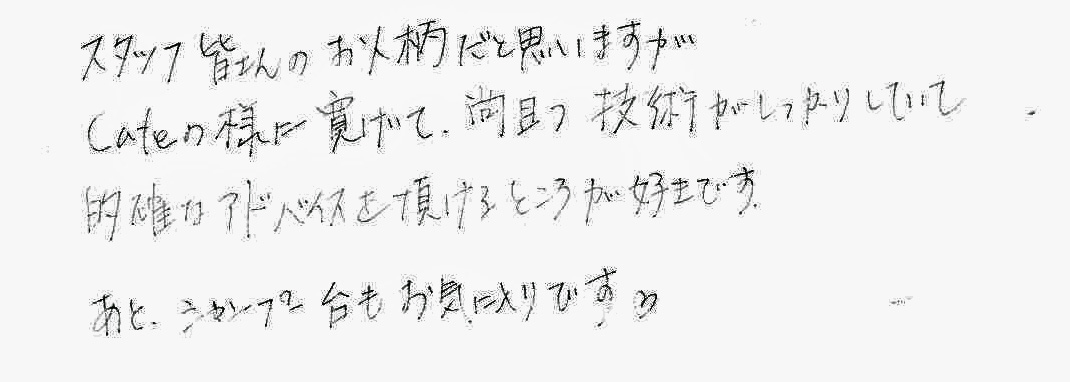 スタッフ皆さんのお人柄だと思いますが
Cafeの様に寛げて、尚且つ技術がしっかりしていて
的確なアドバイスを頂けるところが好きです。
あと、シャンプー台もお気に入りです